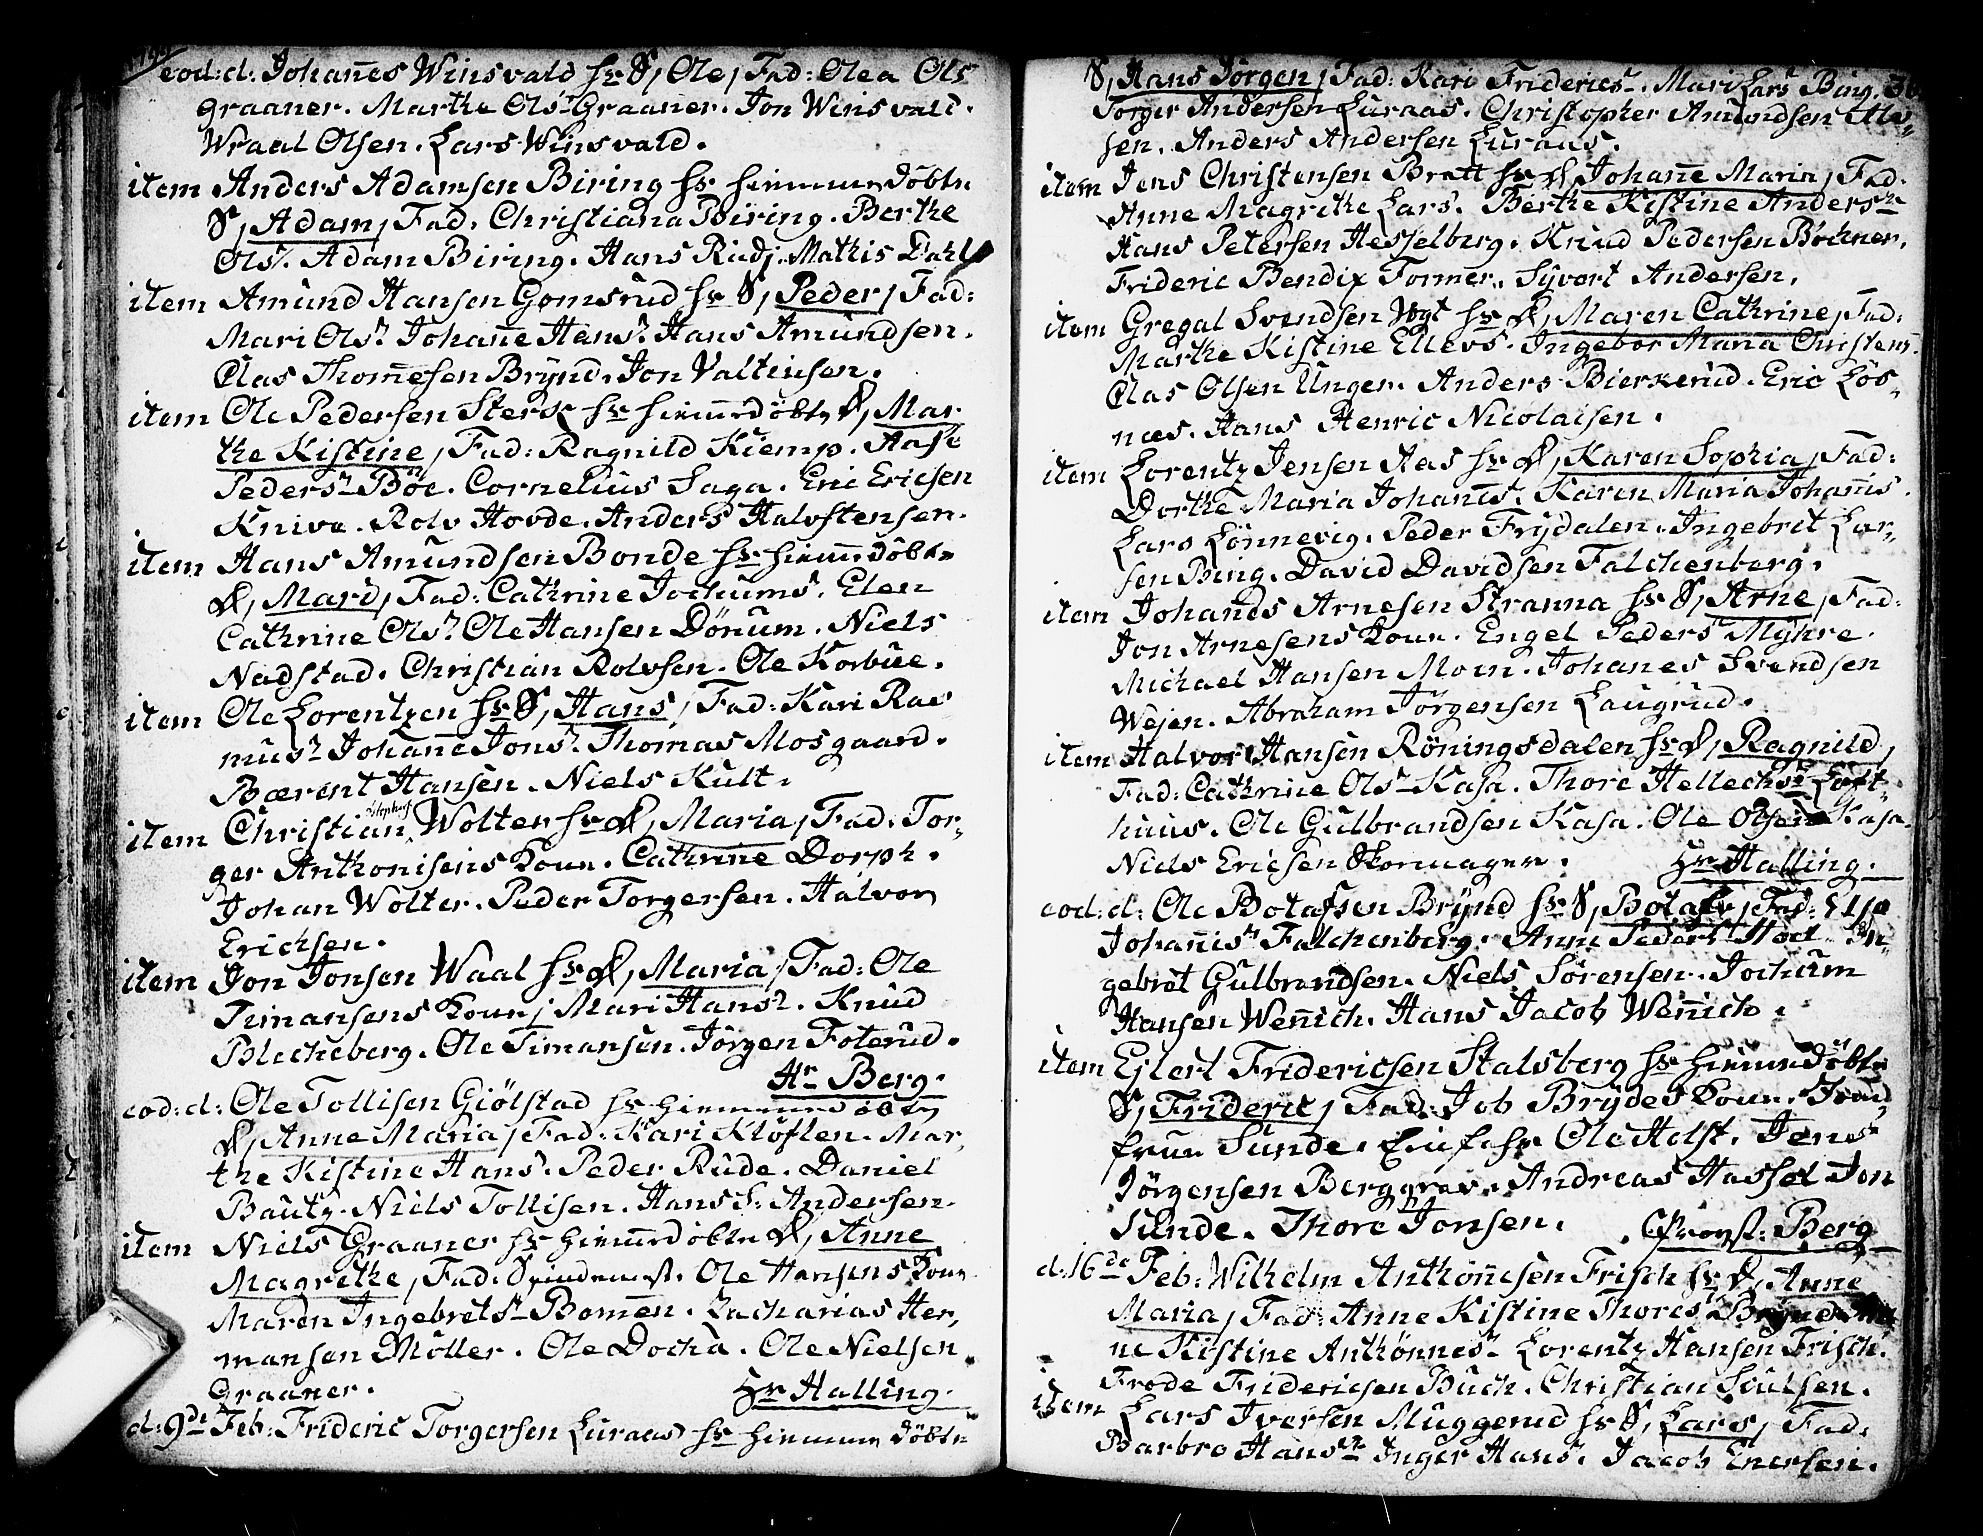 eod: d: Johañes Winsvald hs S, Ole, Fad: Olea Ols
Graaner. Marthe Olsr Graaner. Jon Winsvald.
Wraal Olsen. Lars Winsvald.
item Anders Adamsen Biring hs hiemmedöbte
S, Adam, Fad. Christiana Biring. Berthe
Olsr. Adam Biring. Hans Rud, Mathis Dahl
item Amund Hansen Gomsrud hs S, Peder, Fad:
Mari Olsr Johañe Hansr Hans Amundsen.
Clas Thomesen Brÿnd. Jon Valtinsen.
item Ole Pedersen Sterk hs hiemedöbte D, Mar
the Kistine, Fad: Ragnild Kiemp. Aase
Pedersr Böe. Cornelius Saga. Eric Ericsen
Kniva. Rolv Hovde. Anders Halvstensen.
item Hans Amundsen Bonde hs hiemedöbte
D, Mari, Fad: Cathrine Jochums. Elen
Cathrine Olsr. Ole Hansen Dörum. Niels
Nadstad. Christian Rolvsen. Ole Korbüe.
item Ole Lorentzen hs S, Hans, Fad: Kari Ras
musr Johañe Jonsr. Thomas Mosgaard.
Bærent Hansen. Niels Kult.
item Christian Wolter hs D, Maria, Fad. Tor-
ger Anthonisens Kone. Cathrine Dorph.
Johan Wolter. Peder Torgersen. Halvor
Erichsen.
item Jon Jonsen Waal hs D, Maria, Fad: Ole
Timansens Kone, Mari Hansr. Knud
Blecheberg. Ole Timansen. Jörgen Foterud.
Hr Berg.
eod: d: Ole Tollisen Giölstad hs hiemmedöbte
D, Anne Maria, Fad: Kari Klöften. Mar,
the Kistine Hansr. Peder Rude. Daniel
Bautz. Niels Tollisen. Hans L. Andersen.
item Niels Graaner hs hiemedöbte D, Anne
Magrethe, Fad: Ole Hansens Kone
Maren Ingebretsr Bomen. Zacharias Her,
mansen Möller. Ole Docka. Ole Nielsen
Graaner. Hr Halling.
d. 9de Feb: Frideric Torgersen Luraas hs hiemmedöbte
S, Hans Jörgen, Fad: Kari Fridericsr. Mari Lars Bing.
Torger Andersen Luraas. Christopher Amundsen
sen. Anders Andersen Luraas.
item Jens Christensen Bratt hs D, Johañe Maria, Fad:
Anne Magrethe Larsr. Berthe Kistine Andersr
Hans Petersen Hesselberg. Knud Pedersen Böchner.
Frideric Bendix Former. Syvort Andersen.
item Gregal Svendsen Vogt hs D, Maren Cathrine, Fad:
Marthe Kistine Ellevs. Ingebor Maria Christens
Clas Olsen Unger. Anders Bierkerud. Eric Lös-
næs. Hans Henric Nicolaisen.
item Lorentz Jensen Aas hs D, Karen Sophia, Fad:
Dorthe Maria Johañs. Karen Maria Johañs.
Lars Lönnevig. Peder Frÿdalen. Ingebrit Lar-
sen Bing. David Davidsen Falchenberg.
item Johañes Arnesen Stranna hs S, Arne, Fad:
Jon Arnesens Kone. Engel Pedersr Mÿhre.
Michael Hansen Moen. Johanes Svendsen
Wejen. Abraham Jörgensen Laugrud.
item Halvor Hansen Röningsdalen hs D, Ragnild,
Fad: Cathrine Olsr Kasa. Thore Hellechsr Loft-
huus. Ole Gulbrandsen Kasa. Ole Olsen Kasa.
Niels Ericsen Skomager. Hr Halling.
eod: d: Ole Botafsen Brÿnd hs S, Botafv, Fad: Else
Johañisr Falchenberg. Anne Pedersr Hoel. In-
gebret Gulbrandsen. Niels Sörensen. Jochum
Hansen Weñich. Hans Jacob Weñich.
item Ejlert Fridericsen Stalsberg hs hiemmedöbte
S, Frideric, Fad: Job Brÿdes Kone.
Sunde. Ole Holst. Jens
Jörgensen Berggrav. Andreas Hassel Jon
Sunde. Thore Jonsen. Provst: Berg
d. 16de Feb: Wilhelm Anthöñesen Frisch hs D, Anne
Maria, Fad: Anne Kistine Thoresr Brÿnd
ne Kistine Anthönnesr. Lorentz Hansen Frisch.
Frode Fridericsen Buch. Christian Poulsen.
item Lars Iversen Muggerud hs S, Lars, Fad:
Barbro Hansr Inger Hansr. Jacob Enersen.